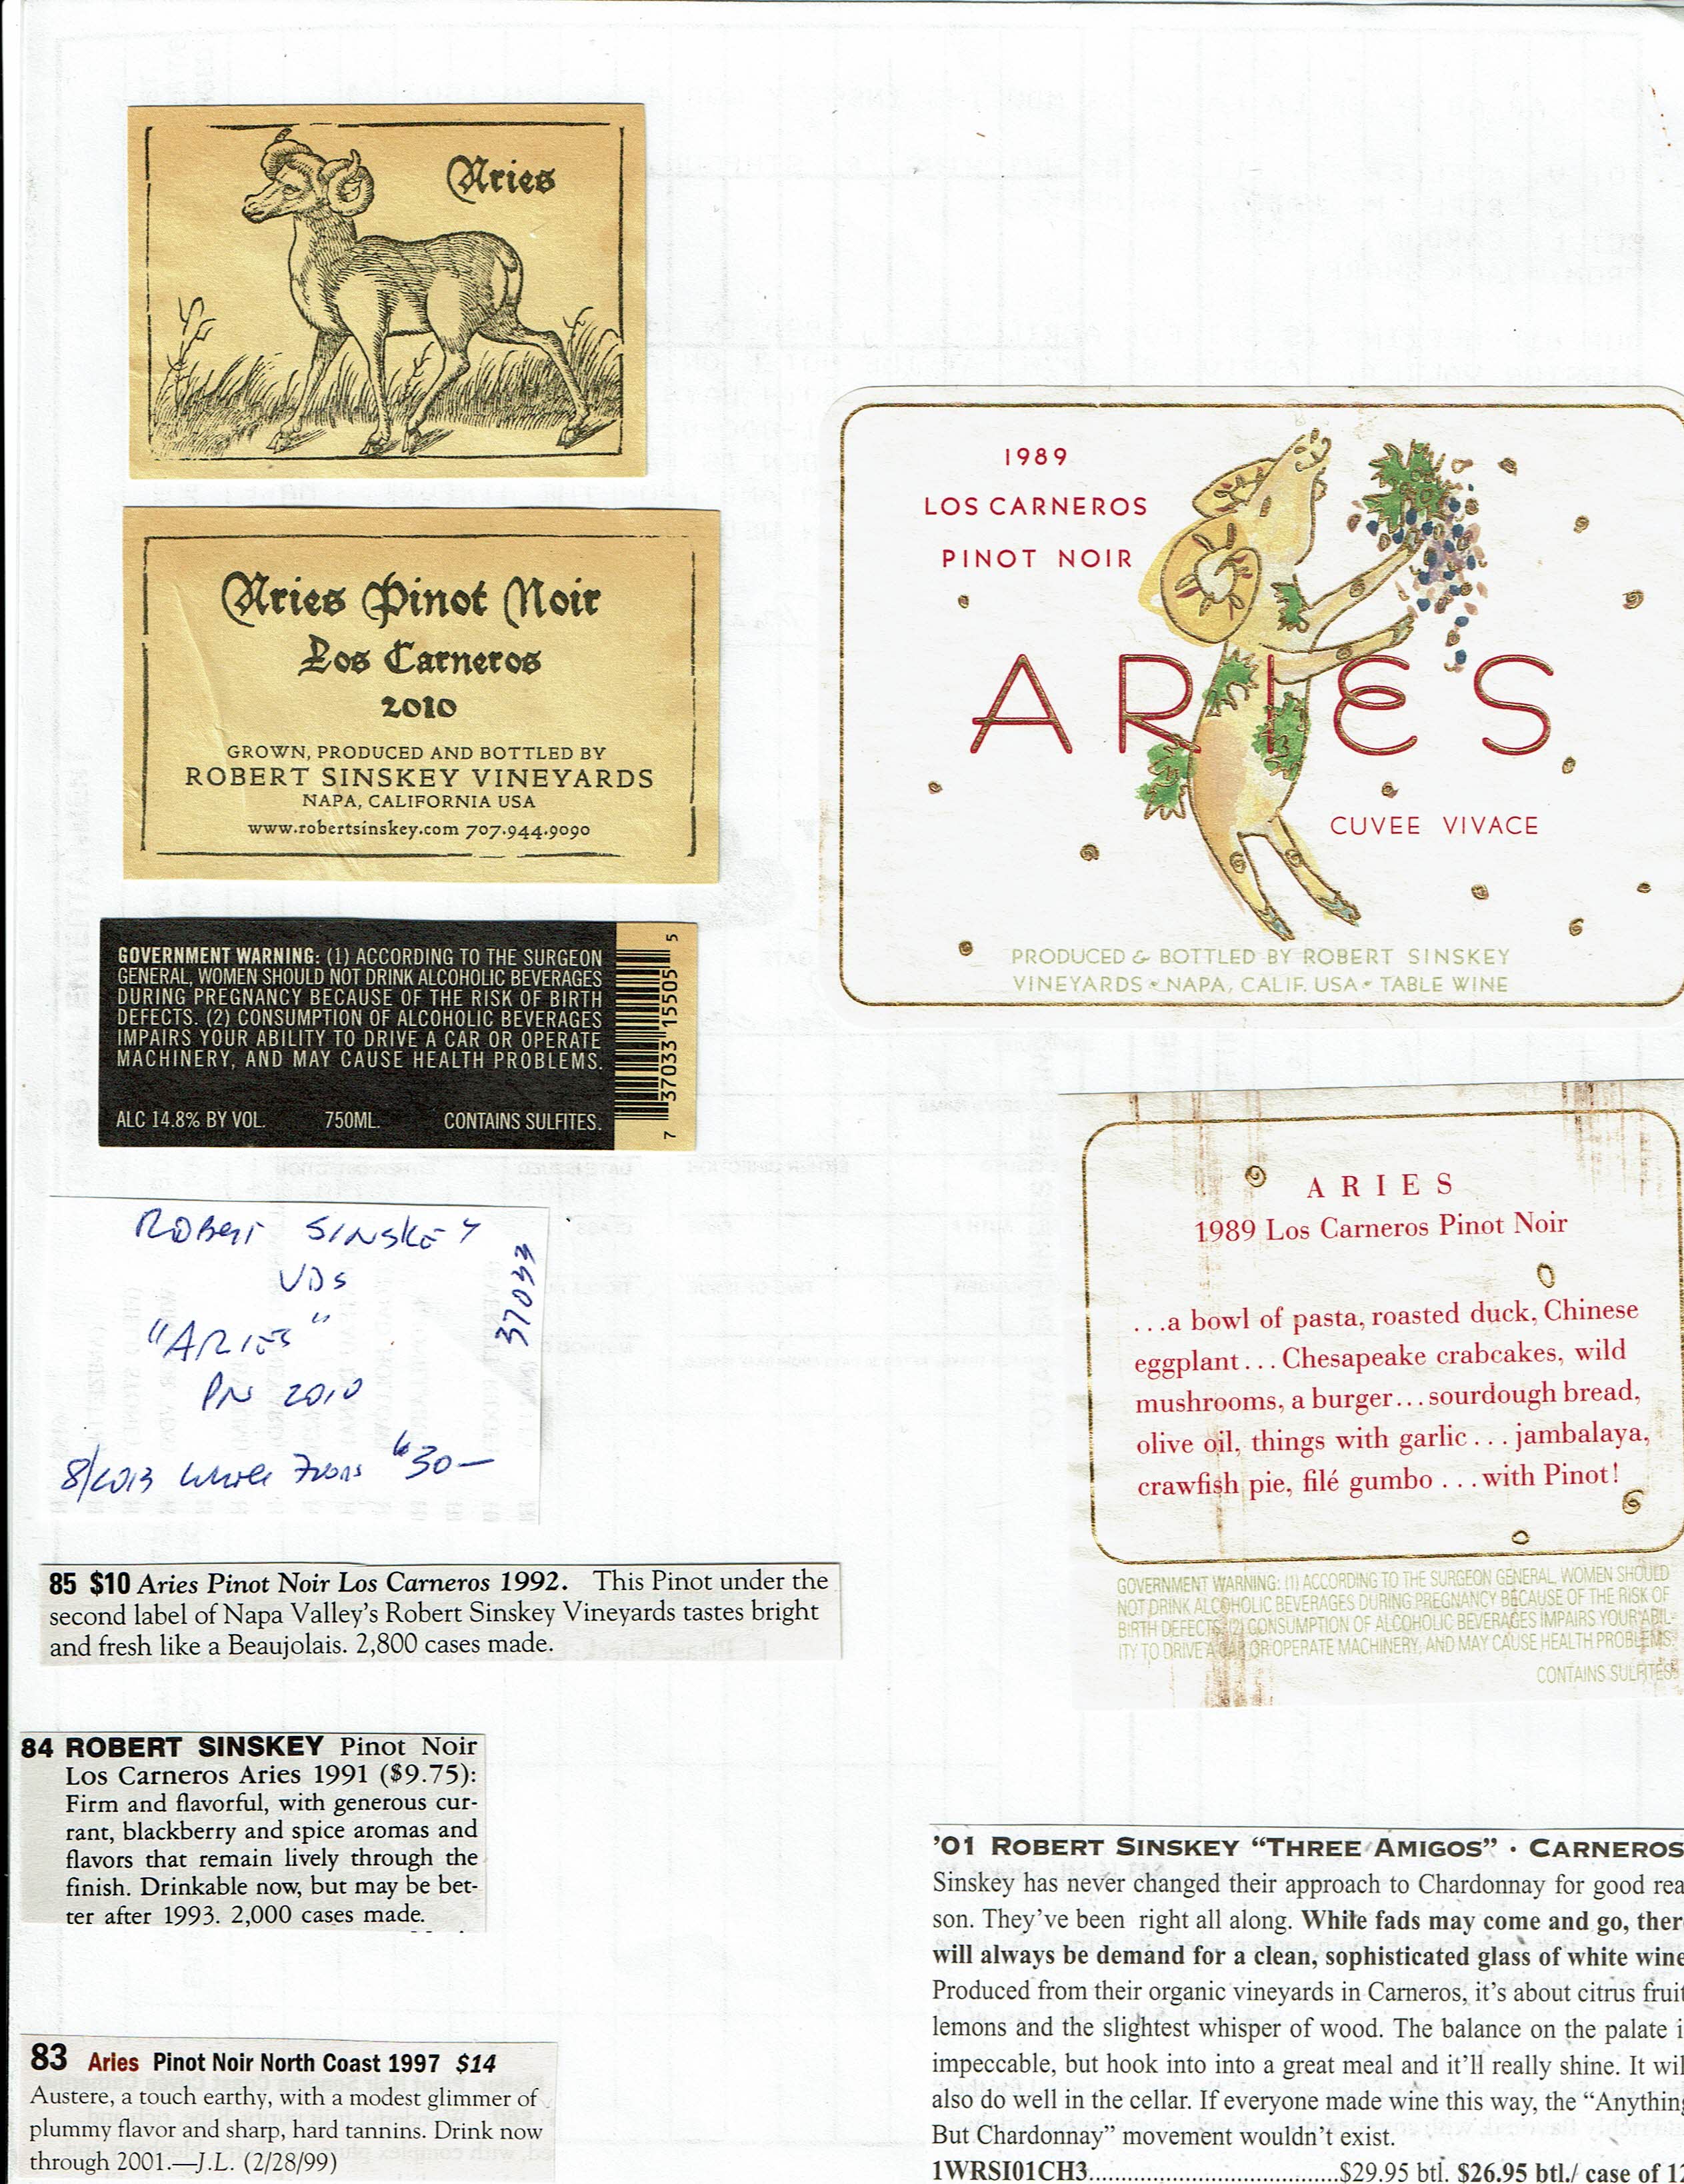 Aries
Aries Pinot Noir
Los Carneros
2010
GROWN, PRODUCED AND BOTTLED BY
ROBERT SINSKEY VINEYARDS
NAPA, CALIFORNIA USA
www.robertsinskey.com 707.944.9090
GOVERNMENT WARNING: (1) ACCORDING TO THE SURGEON
GENERAL, WOMEN SHOULD NOT DRINK ALCOHOLIC BEVERAGES
DURING PREGNANCY BECAUSE OF THE RISK OF BIRTH
DEFECTS. (2) CONSUMPTION OF ALCOHOLIC BEVERAGES
IMPAIRS YOUR ABILITY TO DRIVE A CAR OR OPERATE
MACHINERY, AND MAY CAUSE HEALTH PROBLEMS.
ALC 14.8% BY VOL. 750ML. CONTAINS SULFITES.
7 37033 15505 5
ROBERT SINSKEY
VDS
"ARIES"
PN 2010
37033
8/2013 WHOLE FOODS $30—
85 $10 Aries Pinot Noir Los Carneros 1992. This Pinot under the
second label of Napa Valley's Robert Sinskey Vineyards tastes bright
and fresh like a Beaujolais. 2,800 cases made.
84 ROBERT SINSKEY Pinot Noir
Los Carneros Aries 1991 ($9.75):
Firm and flavorful, with generous cur-
rant, blackberry and spice aromas and
flavors that remain lively through the
finish. Drinkable now, but may be bet-
ter after 1993. 2,000 cases made.
83 Aries Pinot Noir North Coast 1997 $14
Austere, a touch earthy, with a modest glimmer of
plummy flavor and sharp, hard tannins. Drink now
through 2001.—J.L. (2/28/99)
1989
LOS CARNEROS
PINOT NOIR
ARIES
CUVEE VIVACE
PRODUCED & BOTTLED BY ROBERT SINSKEY
VINEYARDS • NAPA, CALIF. USA • TABLE WINE
ARIES
1989 Los Carneros Pinot Noir
...a bowl of pasta, roasted duck, Chinese
eggplant... Chesapeake crabcakes, wild
mushrooms, a burger... sourdough bread,
olive oil, things with garlic ... jambalaya,
crawfish pie, filé gumbo ... with Pinot!
GOVERNMENT WARNING: (1) ACCORDING TO THE SURGEON GENERAL, WOMEN SHOULD
NOT DRINK ALCOHOLIC BEVERAGES DURING PREGNANCY BECAUSE OF THE RISK OF
BIRTH DEFECTS. (2) CONSUMPTION OF ALCOHOLIC BEVERAGES IMPAIRS YOUR ABIL-
ITY TO DRIVE A CAR OR OPERATE MACHINERY, AND MAY CAUSE HEALTH PROBLEMS.
CONTAINS SULFITES.
'01 ROBERT SINSKEY "THREE AMIGOS" · CARNEROS
Sinskey has never changed their approach to Chardonnay for good rea
son. They've been right all along. While fads may come and go, ther
will always be demand for a clean, sophisticated glass of white wine
Produced from their organic vineyards in Carneros, it's about citrus fruit
lemons and the slightest whisper of wood. The balance on the palate i
impeccable, but hook into into a great meal and it'll really shine. It wil
also do well in the cellar. If everyone made wine this way, the "Anything
But Chardonnay" movement wouldn't exist.
1WRSI01CH3..........................................$29.95 btl. $26.95 btl./ case of 12